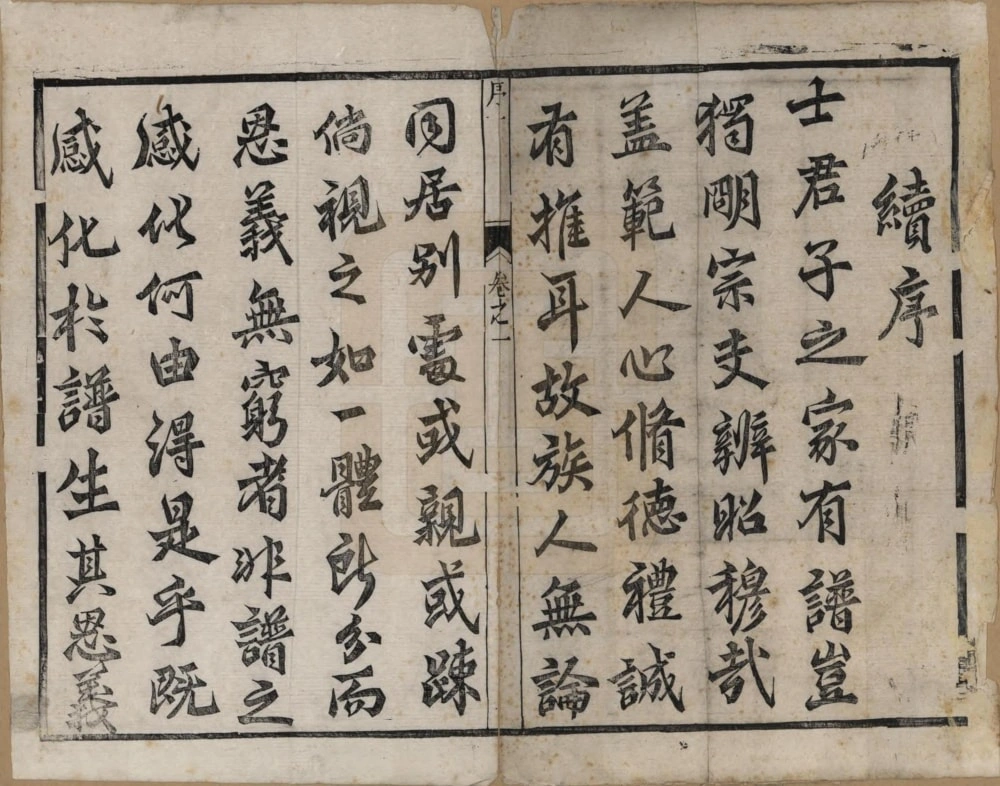 續序
士君子之家有譜豈
獨明宗支辨昭穆哉
盖範人心脩德禮誠
有推耳故族人無論
序一
卷之一
同居别處或親或踈
倘視之如一體所分而
恩義無窮者非譜之
感化何由得是乎既
感化於譜生其恩義